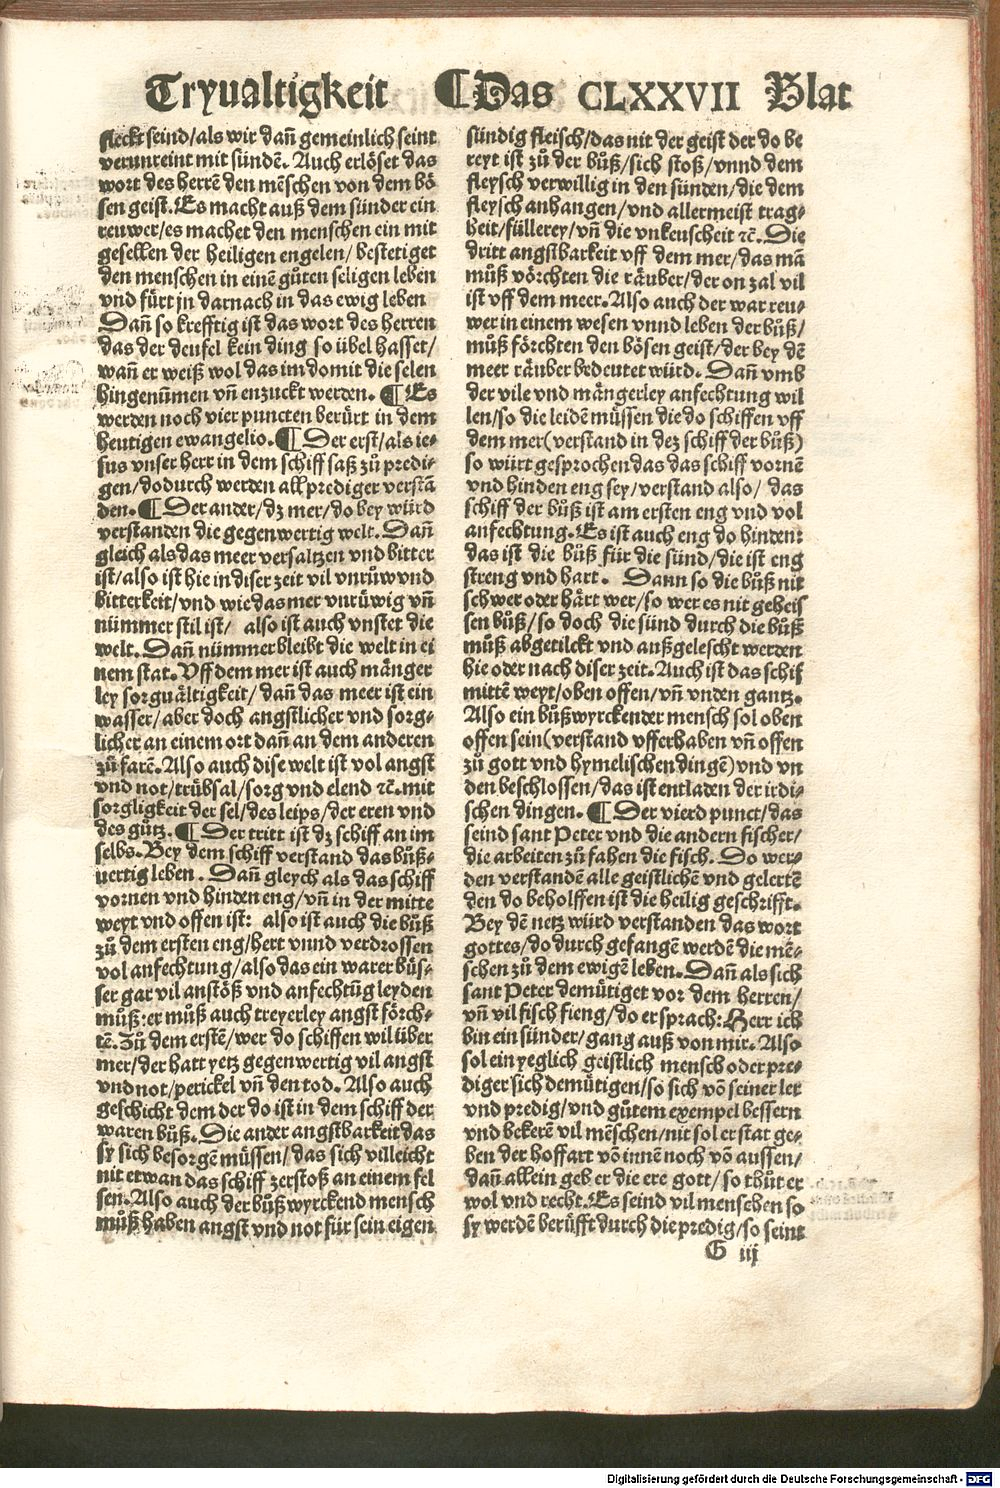 Tryualtigkeit ¶Das CLXXVII Blat
fleckt seind/als wir dañ gemeinlich seint
verunreint mit sündẽ. Auch erlöset das
wort des herrẽ den mẽschen von dem bö
sen geist. Es macht auß dem sünder ein
reuwer/es machet den menschen ein mit
gesellen der heiligen engelen/ bestetiget
den menschen in einẽ gůten seligen leben
vnd fürt jn darnach in das ewig leben
Dañ so krefftig ist das wort des herren
das der deufel kein ding so übel hasset/
wañ er weiß wol das im domit die selen
hingenũmen vñ enzuckt werden. ¶ Es
werden noch vier puncten berürt in dem
heutigen ewangelio. ¶ Der erst/als ie⸗
sus vnser herr in dem schiff saß zů predi⸗
gen/dodurch werden all prediger verstã
den. ¶ Der ander/dz mer/do bey würd
verstanden die gegenwertig welt. Dañ
gleich als das meer versaltzen vnd bitter
ist/also ist hie in diser zeit vil vnrůw vnd
bitterkeit/vnd wie das mer vnrüwig vñ
nümmer stil ist/ also ist auch vnstet die
welt. Dañ nümmer bleibt die welt in ei
nem stat. Vff dem mer ist auch mänger
ley sorguältigkeit/ dañ das meer ist ein
wasser/ aber doch angstlicher vnd sorg⸗
licher an einem ort dañ an dem anderen
zů farẽ. Also auch dise welt ist vol angst
vnd not/trübsal/sorg vnd elend ⁊c̃. mit
sorgligkeit der sel/des leips/der eren vnd
des gůtz. ¶ Der tritt ist dz schiff an im
selbs. Bey dem schiff verstand das bůß⸗
uertig leben. Dañ gleych als das schiff
vornen vnd hinden eng/vñ in der mitte
weyt vnd offen ist: also ist auch die bůß
zů dem ersten eng/hert vnnd verdrossen
vol anfechtung/also das ein warer büs⸗
ser gar vil anstöß vnd anfechtũg leyden
můß: er můß auch treyerley angst förch⸗
tẽ. Zů dem erstẽ/wer do schiffen wil über
mer/der hatt yetz gegenwertig vil angst
vnd not/perickel vñ den tod. Also auch
geschicht dem der do ist in dem schiff der
waren bůß. Die ander angstbarkeit das
sy sich besorgẽ müssen/ das sich villeicht
nit etwan das schiff zerstoß an einem fel
sen. Also auch der bůß wyrckend mensch
můß haben angst vnd not für sein eigen
sündig fleisch/das nit der geist der do be
reyt ist zů der bůß/sich stoß/vnnd dem
fleysch verwillig in den sünden/die dem
fleysch anhangen/vnd allermeist trag⸗
heit/füllerey/vñ die vnkeuscheit ⁊c̃. Die
dritt angstbarkeit vff dem mer/das mã
můß vörchten die räuber/der on zal vil
ist vff dem meer. Also auch der war reu⸗
wer in einem wesen vnnd leben der bůß/
můß förchten den bösen geist/der bey dẽ
meer räuber bedeutet würd. Dañ vmb
der vile vnd mängerley anfechtung wil
len/so die leidẽ müssen die do schiffen vff
dem mer(verstand in dez schiff der bůß)
so würt gesprochen das das schiff vornẽ
vnd hinden eng sey/verstand also/ das
schiff der bůß ist am ersten eng vnd vol
anfechtung. Es ist auch eng do hinden:
das ist die bůß für die sünd/die ist eng
streng vnd hart. Dann so die bůß nit
schwer oder härt wer/so wer es nit geheis
sen bůß/so doch die sünd durch die bůß
můß abgetilckt vnd außgelescht werden
hie oder nach diser zeit. Auch ist das schif
mittẽ weyt/oben offen/vñ vnden gantz.
Also ein bůßwyrckender mensch sol oben
offen sein(verstand vfferhaben vñ offen
zů gott vnd hymelischen dingẽ)vnd vn
den beschlossen/das ist entladen der irdi⸗
schen dingen. ¶ Der vierd punct/das
seind sant Peter vnd die andern fischer/
die arbeiten zů fahen die fisch. Do wer⸗
den verstandẽ alle geistlichẽ vnd gelertẽ
den do beholffen ist die heilig geschrifft.
Bey dẽ netz würd verstanden das wort
gottes/do durch gefangẽ werdẽ die mẽ⸗
schen zů dem ewigẽ leben. Dañ als sich
sant Peter demütiget vor dem herren/
vñ vil fisch fieng/do er sprach: Herr ich
bin ein sünder/gang auß von mir. Also
sol ein yeglich geistlich mensch oder pre⸗
diger sich demütigen/so sich võ seiner ler
vnd predig/vnd gůtem exempel bessern
vnd bekerẽ vil mẽschen/nit sol er stat ge⸗
ben der hoffart võ innẽ noch võ aussen/
dañ allein geb er die ere gott/so thůt er
wol vnd recht. Es seind vil menschen so
sy werdẽ berüfft durch die predig/so seint
G iij
Digitalisierung gefördert durch die Deutsche Forschungsgemeinschaft - DFG